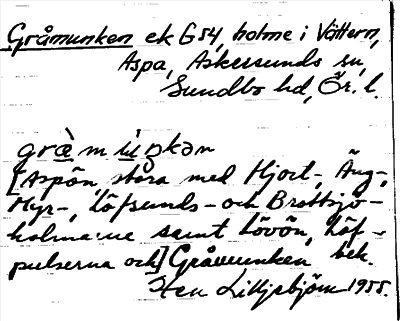 Gråmunken ek G54, holme i Vättern,
Aspa, Askersunds sn,
Sundbo hd, Ör. l.
grà̱m ùŋkən
[Aspön, stora med Hjort-, Äng-,
Myr-, Löfsunds- och Brottsjö-
holmarne samt Lövön, Löf-
pulserna och] Gråmunken beb.
Sten Lilljebjörn 1955.